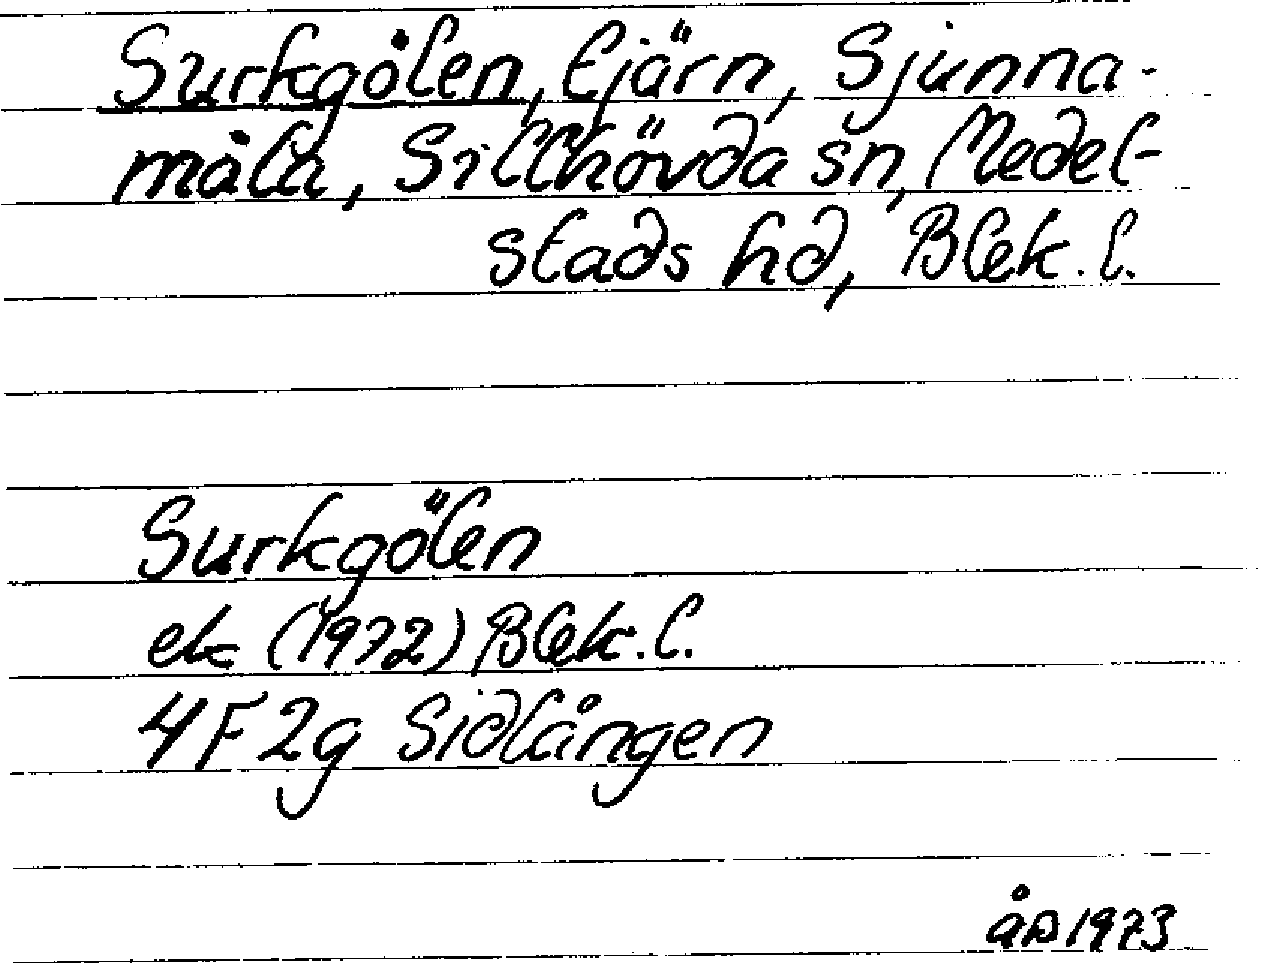 Surkgölen, tjärn, Sjunna-
måla, Sillhövda sn, Medel-
stads hd, Blek. l.
Surkgölen
ek (1972) Blek. l.
4F 2g Sidlången
åD 1973